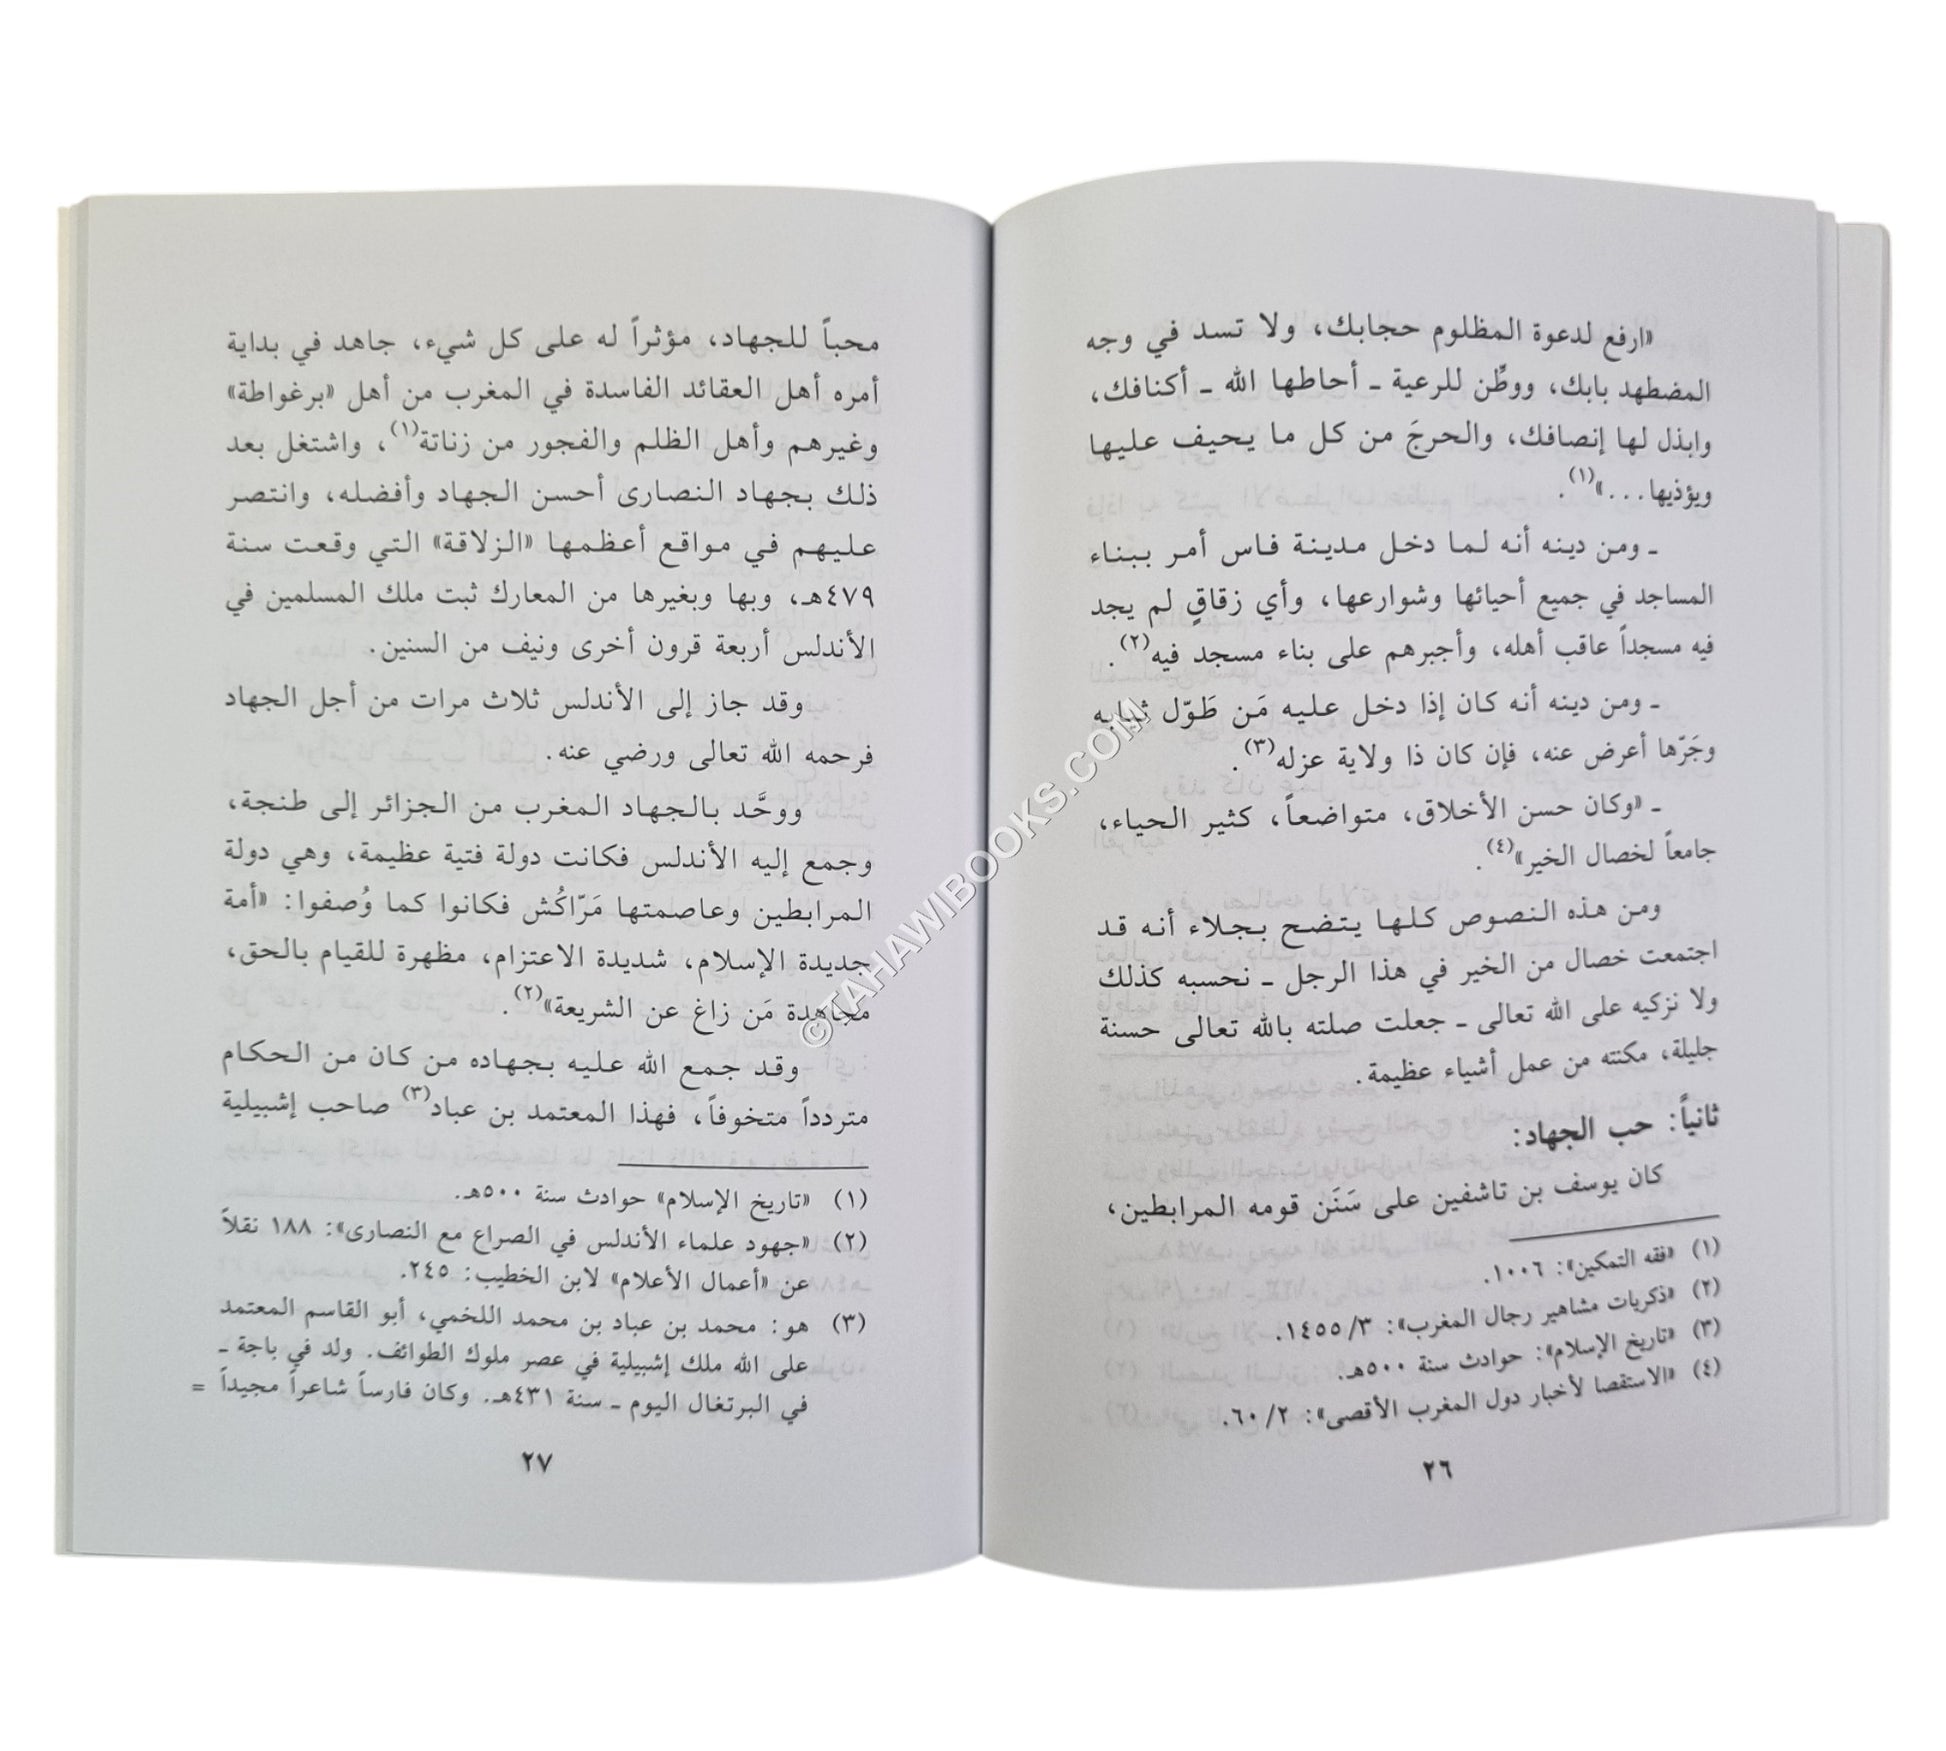 «ارفع لدعوة المظلوم حجابك، ولا تسد في وجه
المضطهد بابك، ووطِّن للرعية ـ أحاطها الله ـ أكنافك،
وابذل لها إنصافك، والحرجَ من كل ما يحيف عليها
ويؤذيها...»(١).
ـ ومن دينه أنه لما دخل مدينة فاس أمر ببناء
المساجد في جميع أحيائها وشوارعها، وأي زقاقٍ لم يجد
فيه مسجداً عاقب أهله، وأجبرهم على بناء مسجد فيه(٢).
ـ ومن دينه أنه كان إذا دخل عليه مَن طَوّل ثيابه
وجَرّها أعرض عنه، فإن كان ذا ولاية عزله(٣).
ـ «وكان حسن الأخلاق، متواضعاً، كثير الحياء،
جامعاً لخصال الخير»(٤).
ومن هذه النصوص كلها يتضح بجلاء أنه قد
اجتمعت خصال من الخير في هذا الرجل ـ نحسبه كذلك
ولا نزكيه على الله تعالى ـ جعلت صلته بالله تعالى حسنة
جليلة، مكنته من عمل أشياء عظيمة.
ثانياً: حب الجهاد:
كان يوسف بن تاشفين على سَنَن قومه المرابطين،
(١) «فقه التمكين»: ١٠٠٦.
(٢) «ذكريات مشاهير رجال المغرب»: ١٤٥٥/٣.
(٣) «تاريخ الإسلام»: حوادث سنة ٥٠٠هـ.
(٤) «الاستقصا لأخبار دول المغرب الأقصى»: ٦٠/٢.
٢٦
محباً للجهاد، مؤثراً له على كل شيء، جاهد في بداية
أمره أهل العقائد الفاسدة في المغرب من أهل «برغواطة»
وغيرهم وأهل الظلم والفجور من زناتة(١)، واشتغل بعد
ذلك بجهاد النصارى أحسن الجهاد وأفضله، وانتصر
عليهم في مواقع أعظمها «الزلاقة» التي وقعت سنة
٤٧٩هـ، وبها وبغيرها من المعارك ثبت ملك المسلمين في
الأندلس أربعة قرون أخرى ونيف من السنين.
وقد جاز إلى الأندلس ثلاث مرات من أجل الجهاد
فرحمه الله تعالى ورضي عنه.
ووحَّد بالجهاد المغرب من الجزائر إلى طنجة،
وجمع إليه الأندلس فكانت دولة فتية عظيمة، وهي دولة
المرابطين وعاصمتها مَرّاكُش فكانوا كما وُصفوا: «أمة
جديدة الإسلام، شديدة الاعتزام، مظهرة للقيام بالحق،
مجاهدة مَن زاغ عن الشريعة»(٢).
وقد جمع الله عليه بجهاده من كان من الحكام
متردداً متخوفاً، فهذا المعتمد بن عباد(٣) صاحب إشبيلية
(١) «تاريخ الإسلام» حوادث سنة ٥٠٠هـ.
(٢) «جهود علماء الأندلس في الصراع مع النصارى»: ١٨٨ نقلاً
عن «أعمال الأعلام» لابن الخطيب: ٢٤٥.
(٣) هو: محمد بن عباد بن محمد اللخمي، أبو القاسم المعتمد
على الله ملك إشبيلية في عصر ملوك الطوائف. ولد في باجة ـ
في البرتغال اليوم ـ سنة ٤٣١هـ. وكان فارساً شاعراً مجيداً =
٢٧
©TAHAWIBOOKS.COM